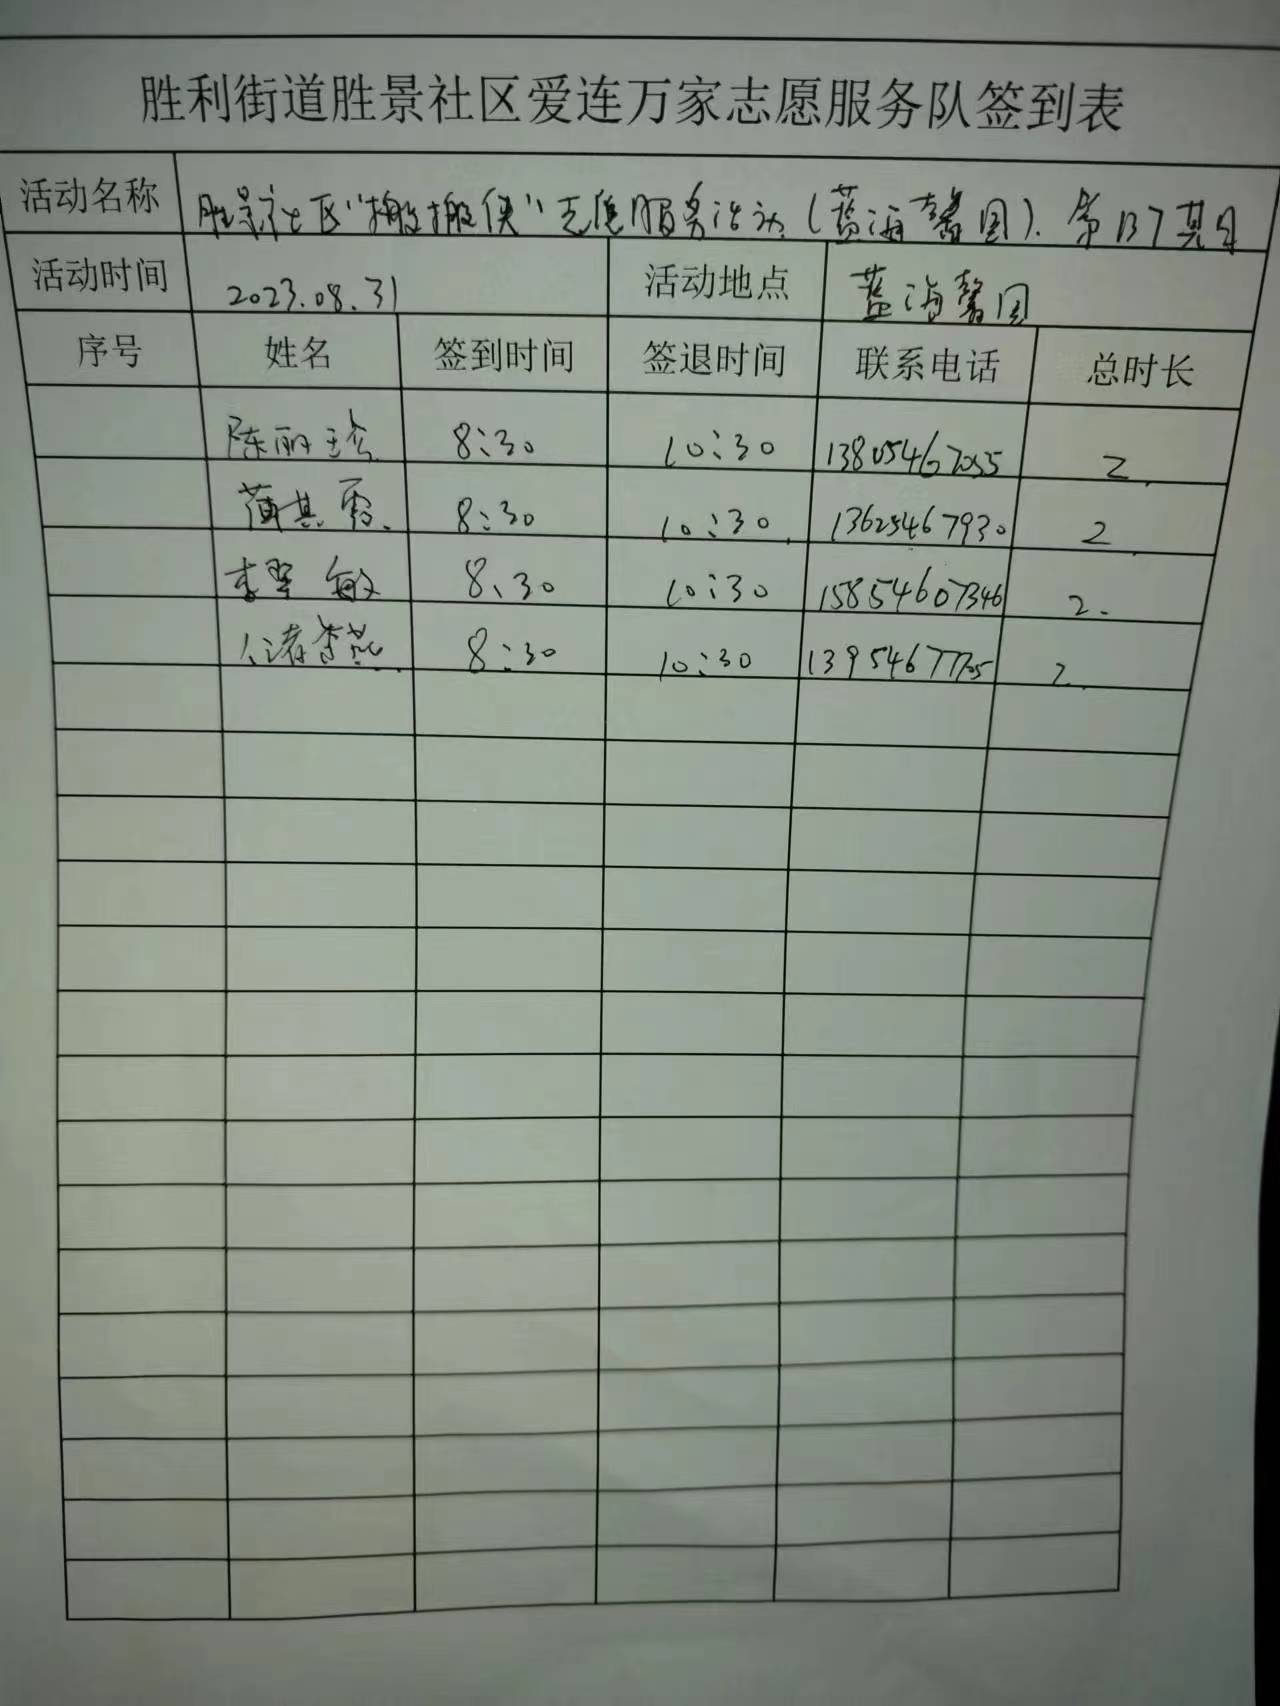 胜利街道胜景社区爱连万家志愿服务队签到表
活动名称 胜景社区“搬搬侠”志愿服务活动(蓝海馨园).第137期
活动时间 2023.08.31 活动地点 蓝海馨园
序号 姓名 签到时间 签退时间 联系电话 总时长
陈丽珍 8:30 10:30 13805467055 2.
蒲其霞. 8:30 10:30. 13625467930 2.
李翠敏 8.30 10:30 15854607346 2.
8:30 10:30 13954677705 2.